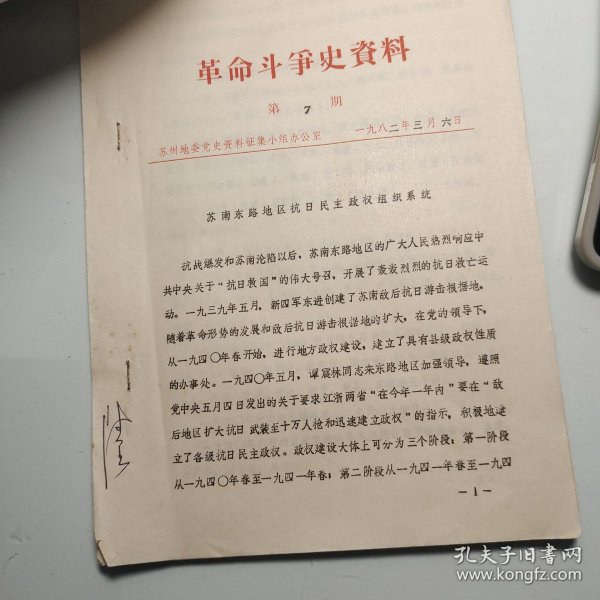 革命斗爭史資料
第 7 期
苏州地委党史资料征集小组办公室 一九八二年三月六日
苏南东路地区抗日民主政权组织系统
抗战爆发和苏南沦陷以后，苏南东路地区的广大人民热烈响应中
共中央关于“抗日救国”的伟大号召，开展了轰轰烈烈的抗日救亡运
动。一九三九年五月，新四军东进创建了苏南敌后抗日游击根据地，
随着革命形势的发展和敌后抗日游击根据地的扩大，在党的领导下，
从一九四〇年春开始，进行地方政权建设，建立了具有县级政权性质
的办事处。一九四〇年五月，谭震林同志来东路地区加强领导，遵照
党中央五月四日发出的关于要求江浙两省“在今年一年内”要在“敌
后地区扩大抗日 武装至十万人枪和迅速建立政权”的指示，积极地建
立了各级抗日民主政权。政权建设大体上可分为三个阶段：第一阶段
从一九四〇年春至一九四一年春；第二阶段从一九四一年春至一九四
－1－
孔夫子旧书网
www.kongfz.com